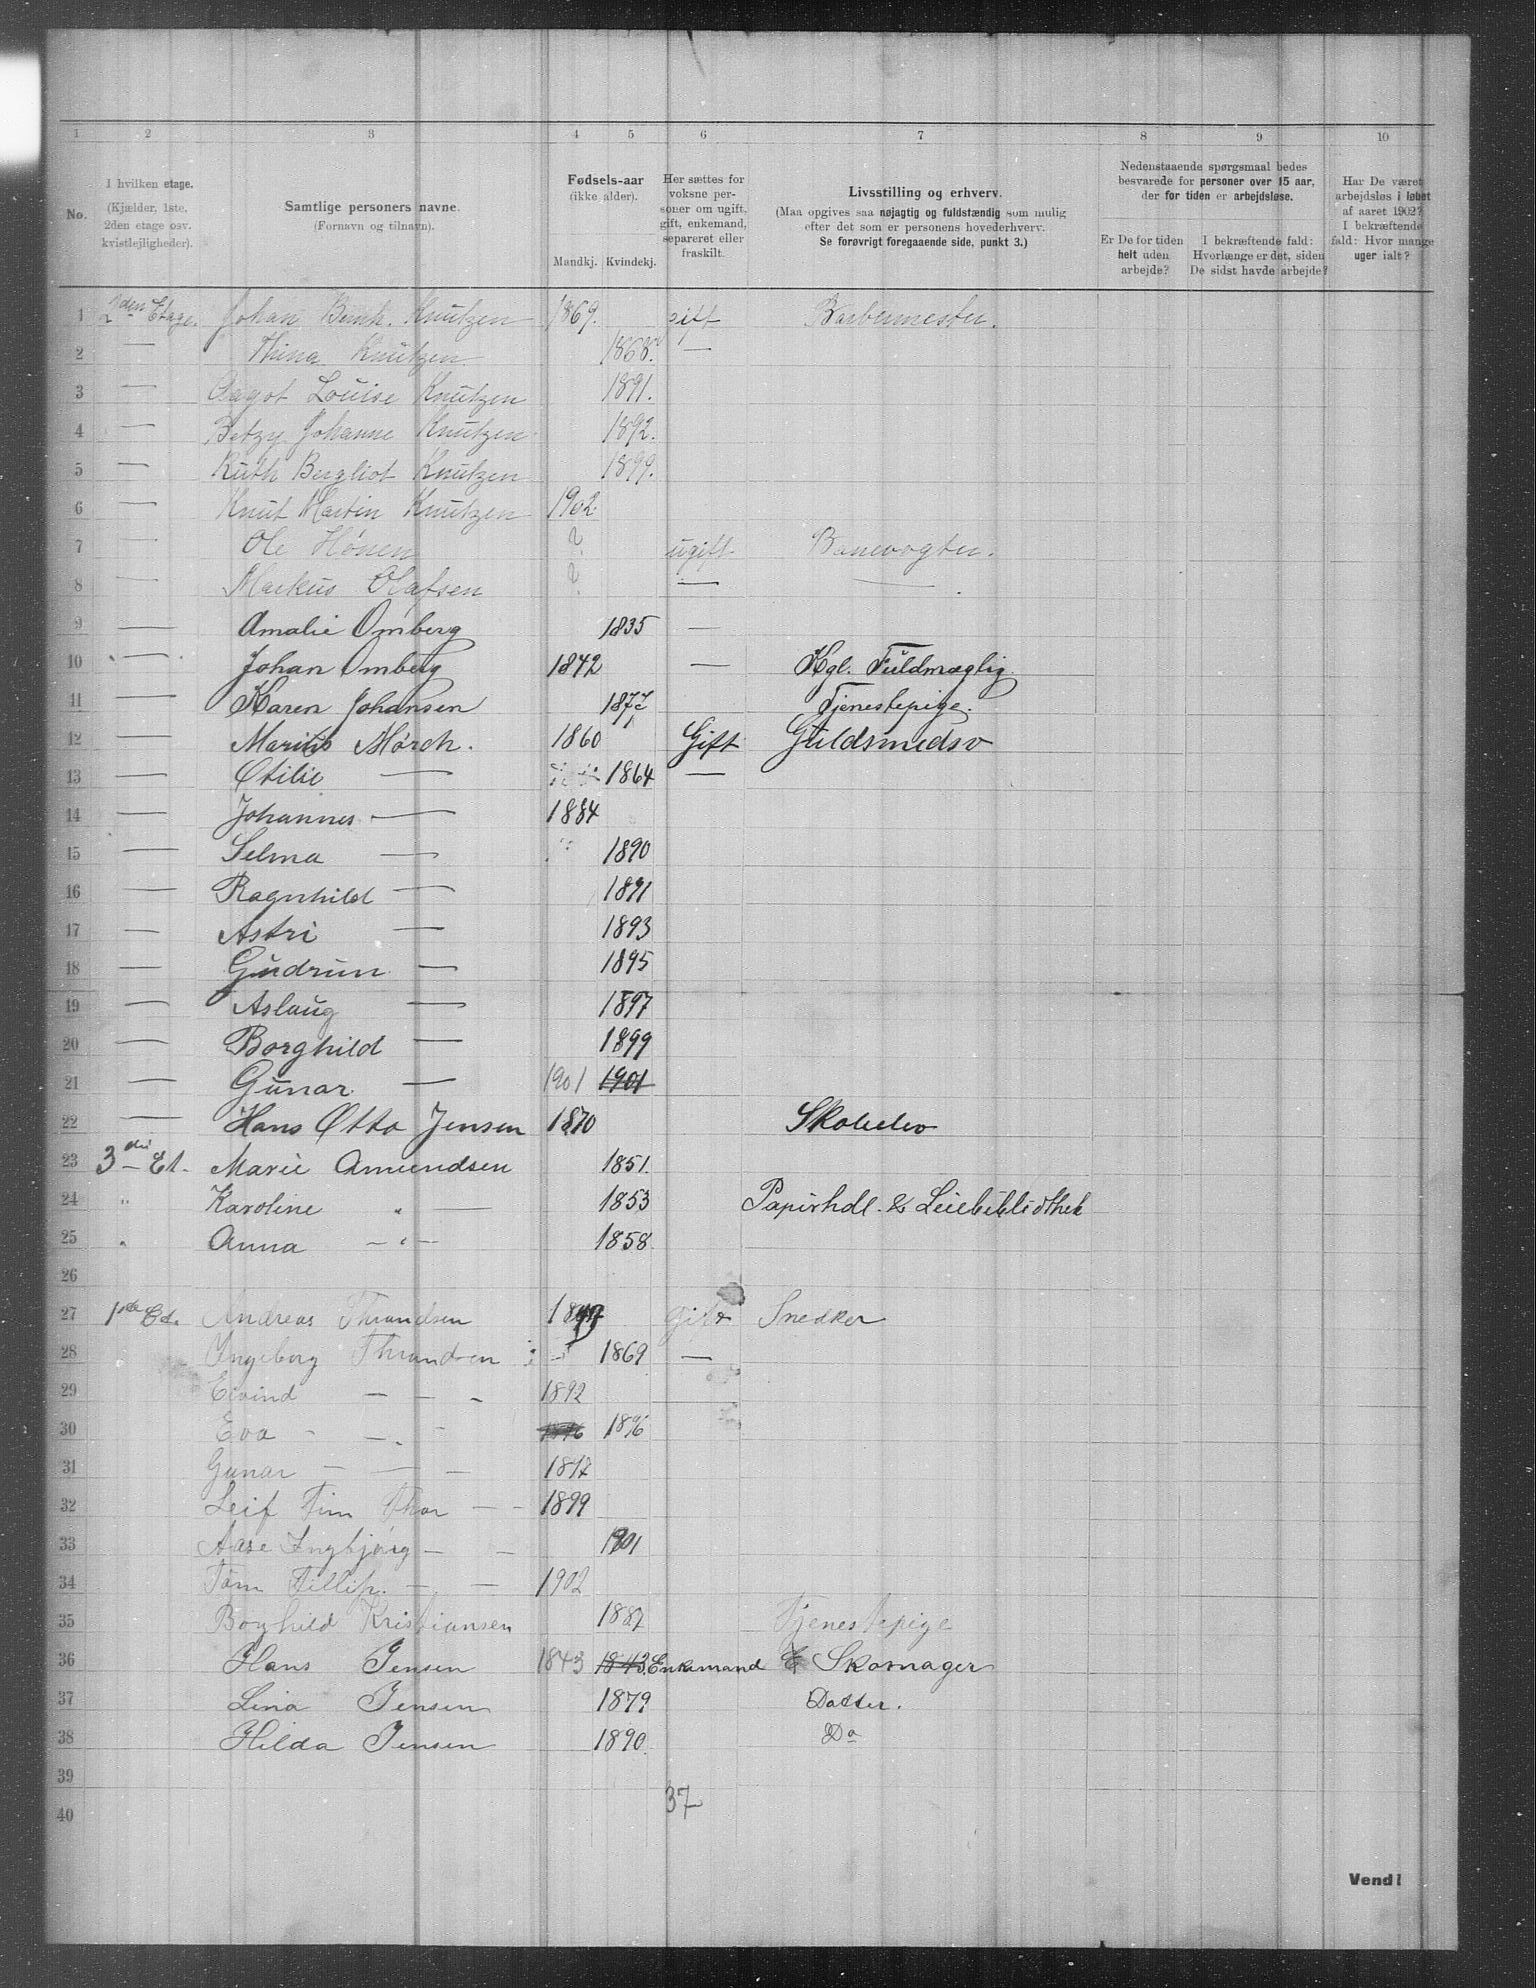 1 2 3 4 5 6 7 8 9 10
No.
I hvilken etage.
(Kjælder, 1ste,
2den etage osv.
kvistlejligheder).
Samtlige personers navne.
(Fornavn og tilnavn).
Fødsels-aar
(ikke alder).
Mandkj. Kvindekj.
Her sættes for
voksne per-
soner om ugift,
gift, enkemand,
separeret eller
fraskilt.
Livsstilling og erhverv.
(Maa opgives saa nøjagtig og fuldstændig som mulig
efter det som er personens hovederhverv.
Se forøvrigt foregaaende side, punkt 3.)
Nedenstaaende spørgsmaal bedes
besvarede for personer over 15 aar,
der for tiden er arbejdsløse.
Er De for tiden
helt uden
arbejde?
I bekræftende fald:
Hvorlænge er det, siden
De sidst havde arbejde?
Har De været
arbejdsløs i løbet
af aaret 1902?
I bekræftende
fald: Hvor mange
uger ialt?
1 2den Etage. Johan Bernh. Knutzen 1869. gift Barbermester.
2 — Thina Knutzen 1868. —
3 — Aagot Louise Knutzen 1891.
4 — Betzy Johanne Knutzen 1892.
5 — Ruth Bergliot Knutzen 1899.
6 — Knut Martin Knutzen 1902.
7 — Ole Hønen ? ugift Banevogter.
8 — Markus Olafsen ? — —
9 — Amalie Omberg 1835 —
10 — Johan Omberg 1842 — Kgl. Fuldmægtig
11 — Karen Johansen 1877 Tjenestepige.
12 — Marius Mørch. 1860 Gift Guldsmedsv
13 — Otilie — 1864 —
14 — Johannes — 1884
15 — Selma — 1890
16 — Ragnhild — 1891
17 — Astri — 1893
18 — Gudrun — 1895
19 — Aslaug — 1897
20 — Borghild — 1899
21 — Gunar — 1901 1901
22 — Hans Otto Jensen 1870 Skotelev
23 3die Et. Marie Amundsen 1851.
24 " Karoline " — 1853 Papirhdl. & Leiebibliothek
25 " Anna — " — 1858
26
27 1ste Et. Andreas Thrandsen gift Snedker
28 Ingeborg Thrandsen 1869 —
29 Eivind — — - 1892
30 Eva - — - 1896
31 Gunar — — — 1897
32 Leif Finn Thor — - 1899
33 Aase Ingbjørg — — 1901
34 Tom Fillip. — — 1902
35 Borghild Kristiansen 1887 Tjenestepige
36 Hans Jensen 1843 1843 Enkemand Skomager
37 Lina Jensen 1879 Datter.
38 Hilda Jensen 1890 Do
39
40
37
Vend!